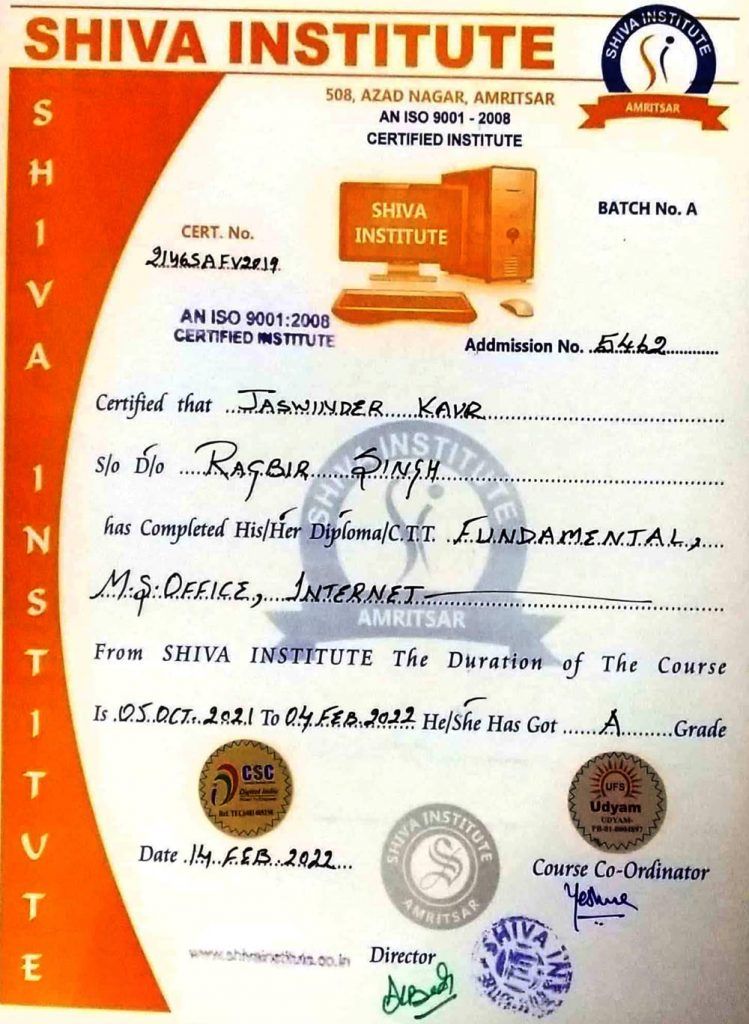 SHIVA INSTITUTE
SHIVA INSTITUTE
AMRITSAR
508, AZAD NAGAR, AMRITSAR
AN ISO 9001 - 2008
CERTIFIED INSTITUTE
SHIVA INSTITUTE
SHIVA
INSTITUTE
BATCH No. A
CERT. No.
2146SAFV2019
AN ISO 9001:2008
CERTIFIED INSTITUTE
Addmission No. 5462
Certified that JASWINDER KAUR
S/o D/o RAGBIR SINGH
has Completed His/Her Diploma/C.T.T. FUNDAMENTAL,
M.S. OFFICE, INTERNET
SHIVA INSTITUTE
AMRITSAR
From SHIVA INSTITUTE The Duration of The Course
Is 05 OCT. 2021 To 04 FEB. 2022 He/She Has Got A Grade
CSC
Digital India
UFS
Udyam
UDYAM-
Date 14 FEB. 2022
SHIVA INSTITUTE
AMRITSAR
Course Co-Ordinator
www.shivainstitute.co.in
Director
SHIVA